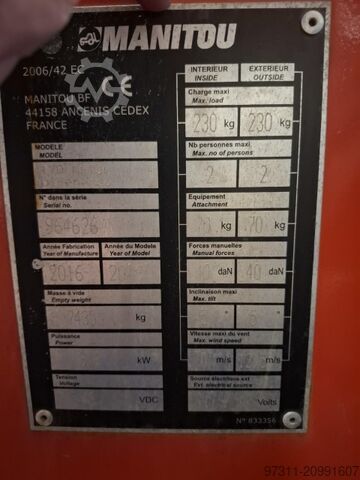 MANITOU
2006/42 EC
CE
MANITOU BF
44158 ANCENIS CEDEX
FRANCE
INTERIEUR
INSIDE
EXTERIEUR
OUTSIDE
Charge maxi
Max. load
230 kg 230 kg
Nb personnes maxi
Max. no of persons
2 2
Equipement
Attachment
kg 70 kg
Forces manuelles
Manual forces
daN 40 daN
Inclinaison maxi
Max. tilt
° °
Vitesse maxi du vent
Max. wind speed
m/s
Source électrique ext
Ext. electrical source
Volts
MODÈLE
MODEL
N° dans la série
Serial no.
964626
Année Fabrication
Year of Manufacture
Année du Modele
Year of Model
2016
Masse à vide
Empty weight
kg
Puissance
Power
kW
Tension
Voltage
VDC
N° 833356
97311-20991607